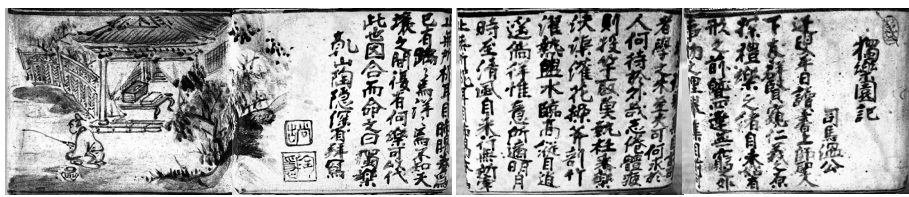 獨樂園記
司馬溫公
迂叟平日讀書上師聖人
下友群賢窺仁義之原
探禮樂之緒自未始有
形之前暨四達無窮之外
事物之理舉集目前
者學之未至夫可何求於
人何待於外哉志倦體疲
則投竿取魚執衽采藥
決渠灌花操斧剖竹
濯熱盥水臨高縱目逍
遙徜徉惟意所適明月
時至清風自來行無所牽
止無所柅耳目肺腸
止無所柅耳目肺腸悉為
己有踽々焉洋々焉不知天
壤之間復有何樂可以代
此也因合而命之曰獨樂
山陶隱